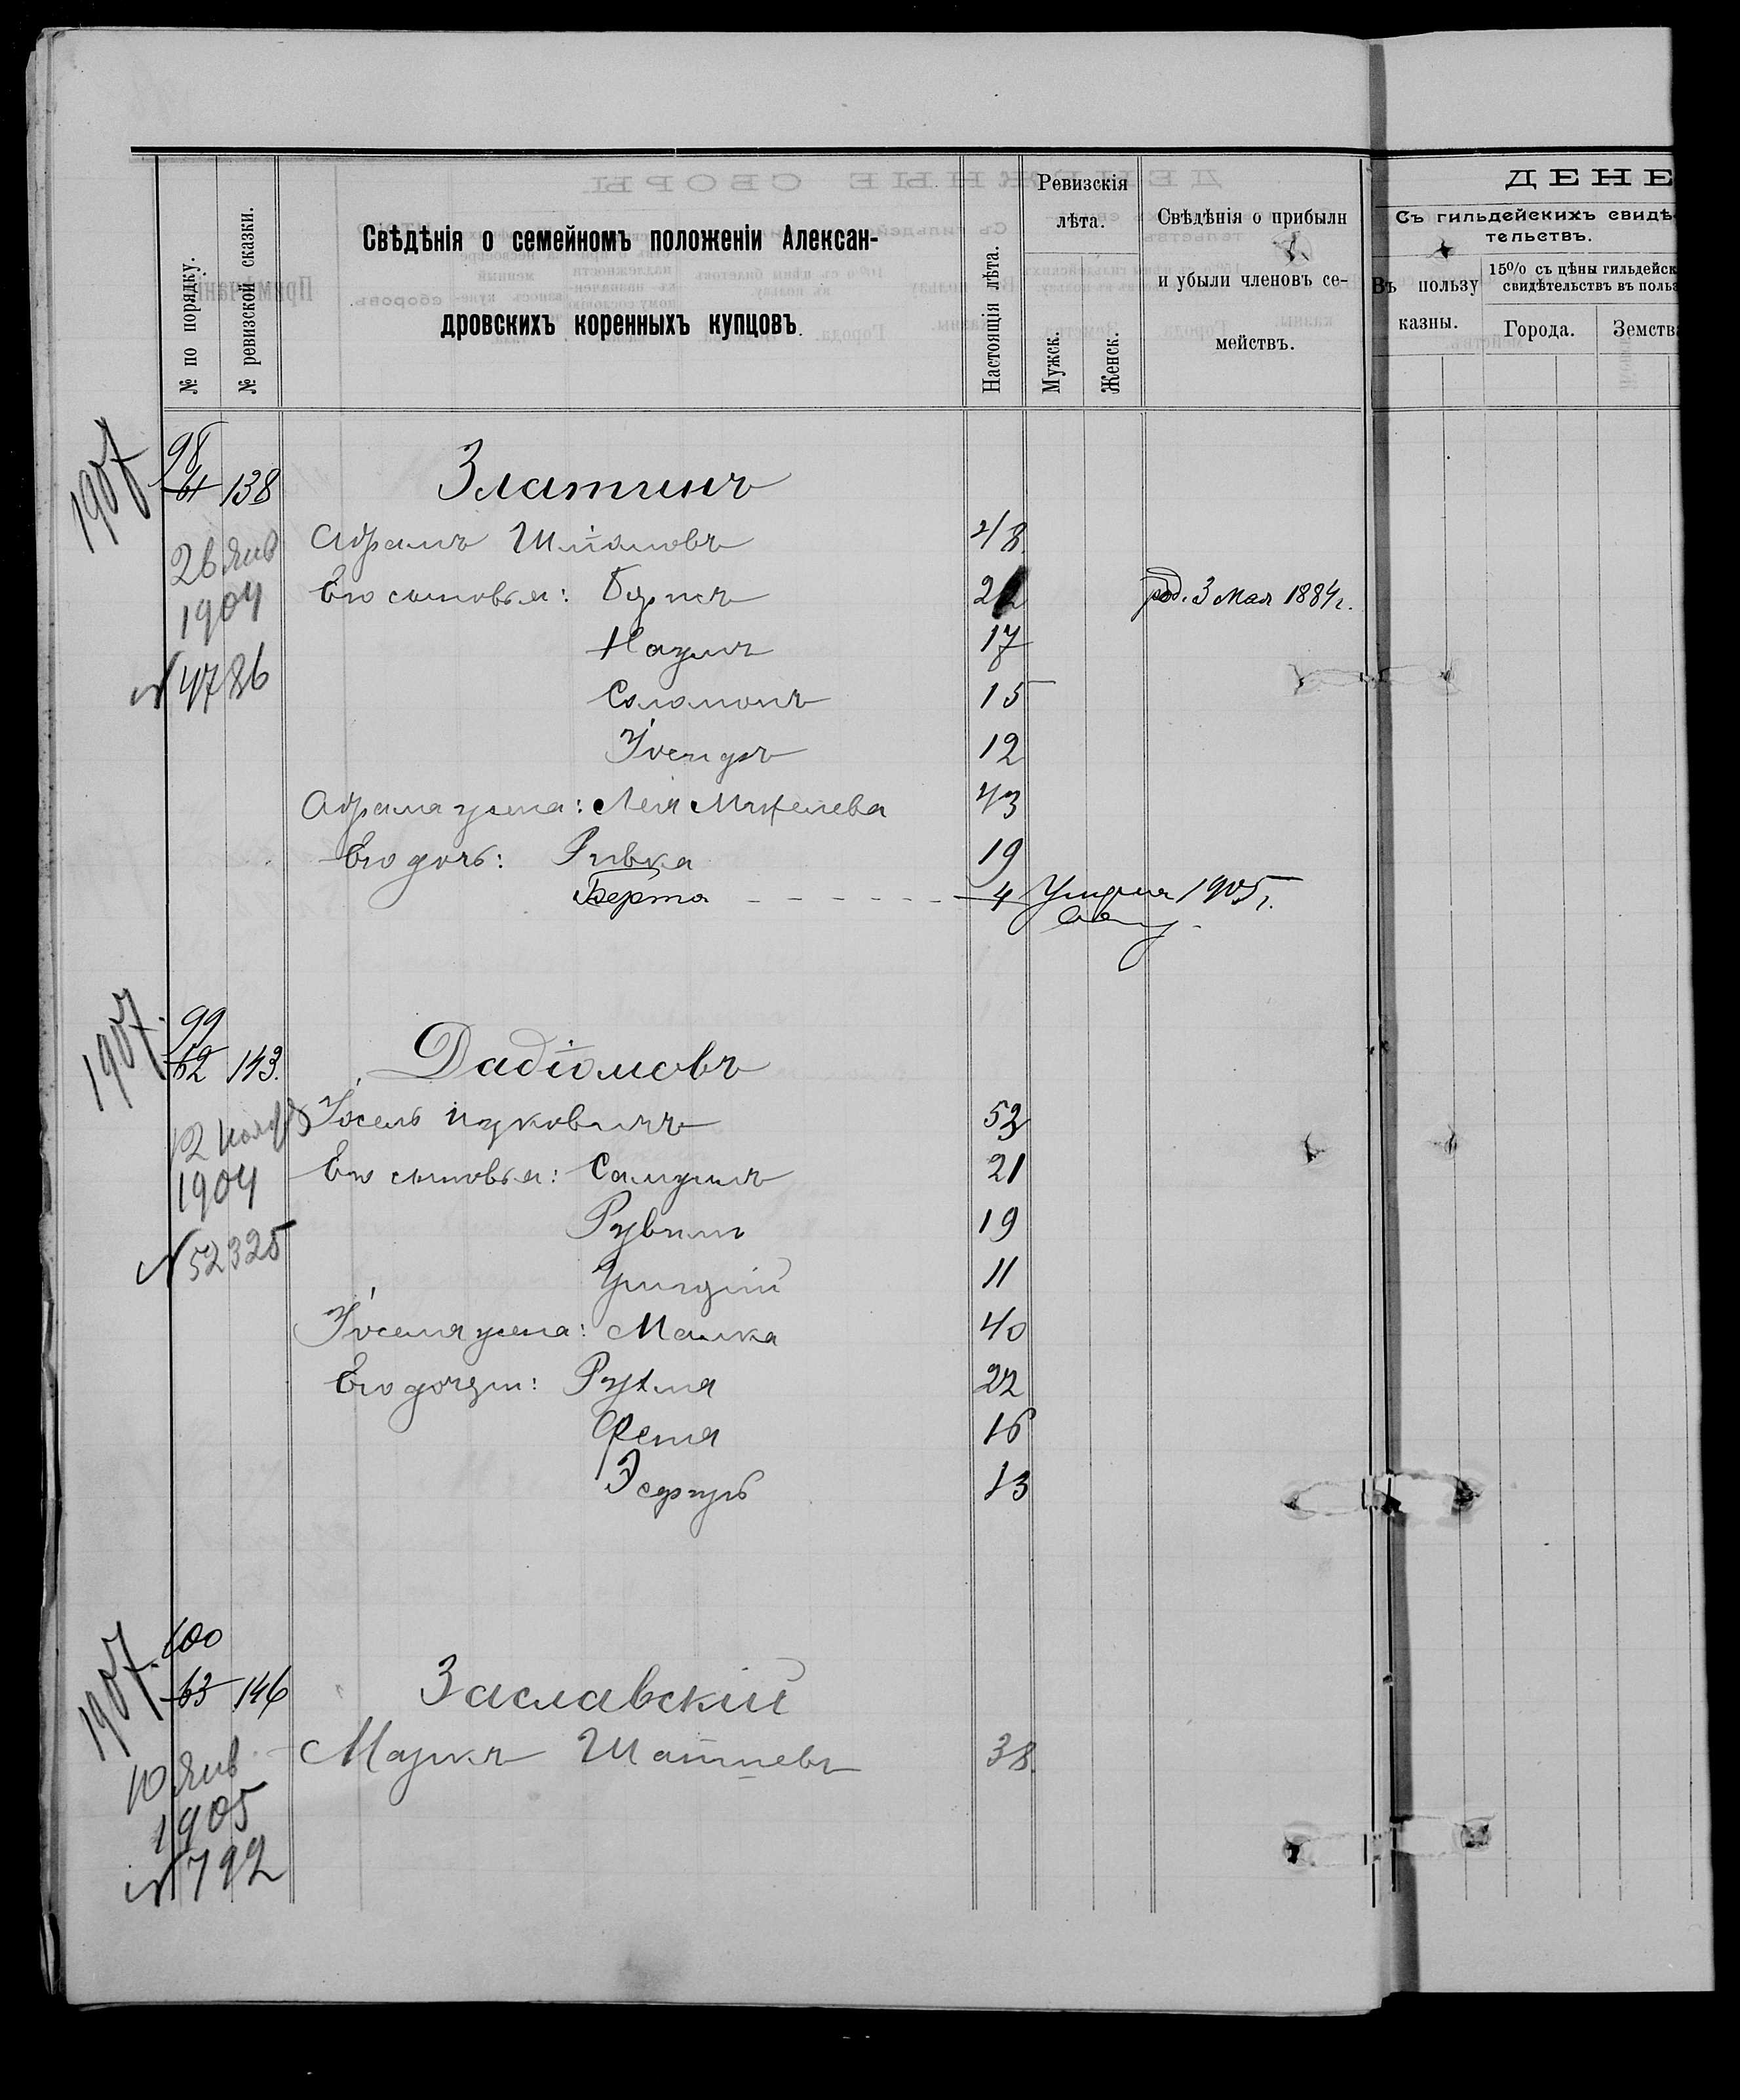 № по порядку.
№ ревизской сказки.
Свѣдѣнія о семейномъ положеніи Алексан-
дровскихъ коренныхъ купцовъ.
Настоящія лѣта.
Ревизскія
лѣта.
Мужск.
Женск.
Свѣдѣнія о прибыли
и убыли членовъ се-
мействъ.
ДЕНЕ
Съ гильдейскихъ свидѣ-
тельствъ.
Въ пользу
казны.
15% съ цѣны гильдейск
свидѣтельствъ въ польз
Города.
Земства
1907
98
61 138
Златинъ
26 Янв
1904
№ 4786
Абрамъ Шліомовъ 48.
Его сыновья: Борисъ 21 род. 3 Мая 1884 г.
Наумъ 17
Соломонъ 15
Іосифъ 12
Абрама жена: Лея Михелева 43
Его дочь: Ривка 19
Берта 4 Умерла 1905 г.
1907.
99
62 143.
Дадіомовъ
12 Нояб
1904
№ 52325
Іосель Ицковичъ 53
Его сыновья: Самуилъ 21
Рувимъ 19
Григорій 11
Іоселя жена: Малка 40
Его дочери: Рухля 22
Феня 16
Эсфирь 13
1907.
100
63 146
Заславскій
10 Янв
1905
№ 792
Маркъ 38.